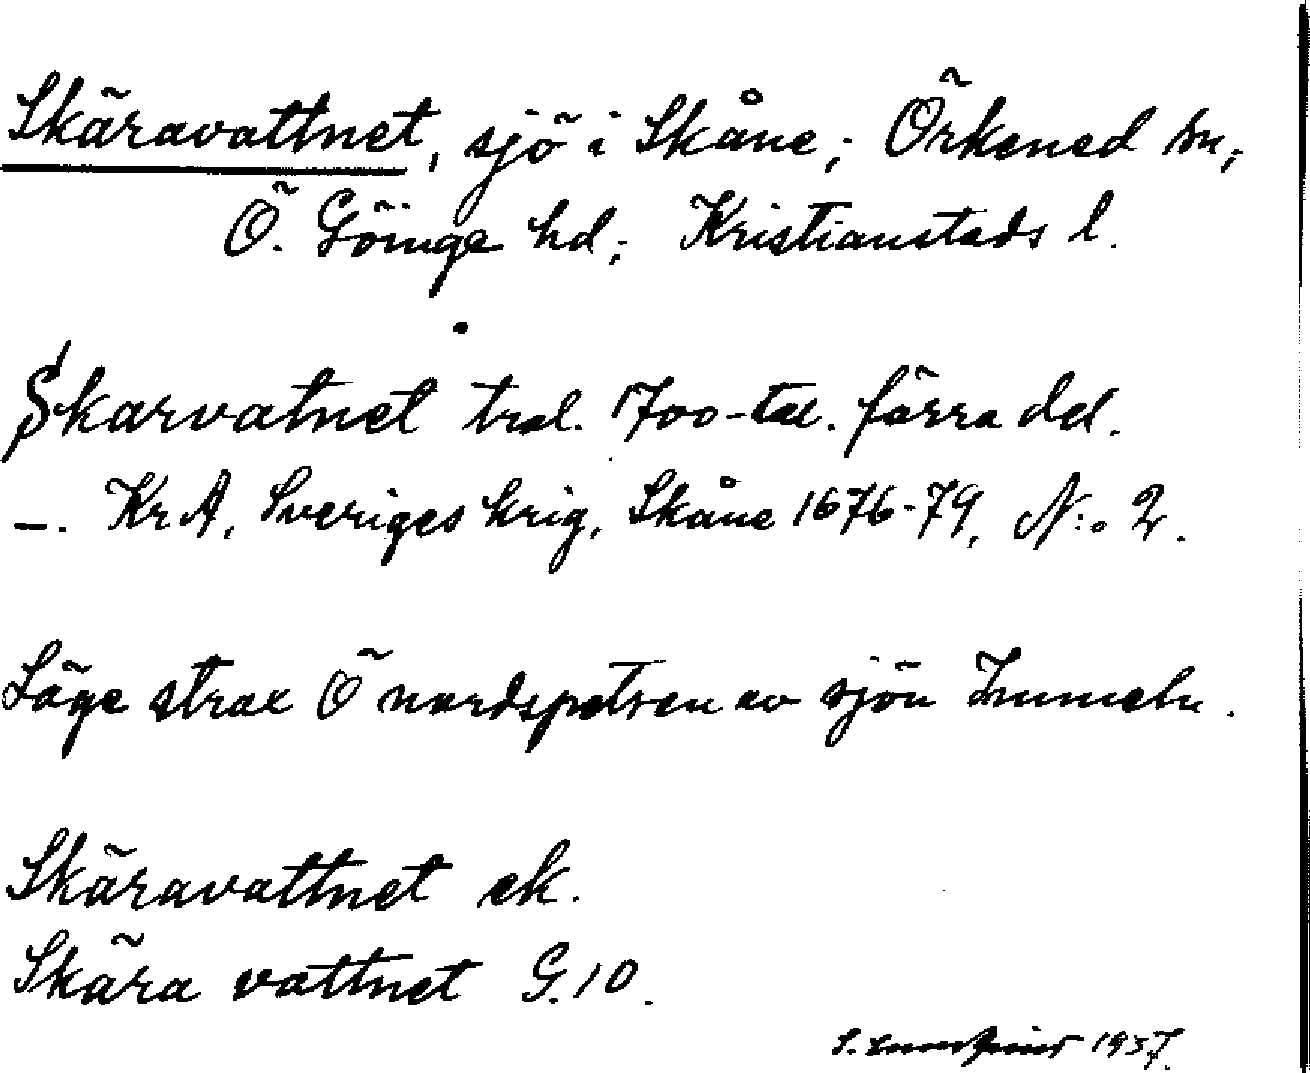 Skäravattnet, sjö i Skåne; Örkened sn;
Ö. Göinge hd; Kristianstads l.
Skarvatnet trol. 1700-tal. förra del.
–. KrA, Sveriges krig, Skåne 1676-79, N:o 2.
Läge strax Ö nordspetsen av sjön Immeln.
Skäravattnet ek.
Skära vattnet G.10.
S. 1937.